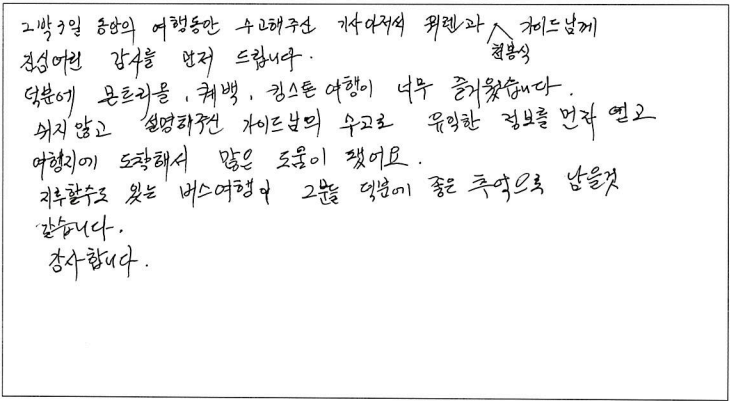 2박3일 동안의 여행동안 수고해주신 기사아저씨 뀌렌과 현봉식 가이드님께
진심어린 감사를 먼저 드립니다.
덕분에 몬트리올, 퀘백, 킹스톤 여행이 너무 즐거웠습니다.
쉬지 않고 설명해주신 가이드님의 수고로 유익한 정보를 먼저 얻고
여행지에 도착해서 많은 도움이 됐어요.
지루할수도 있는 버스여행이 그분들 덕분에 좋은 추억으로 남을것
같습니다.
감사합니다.